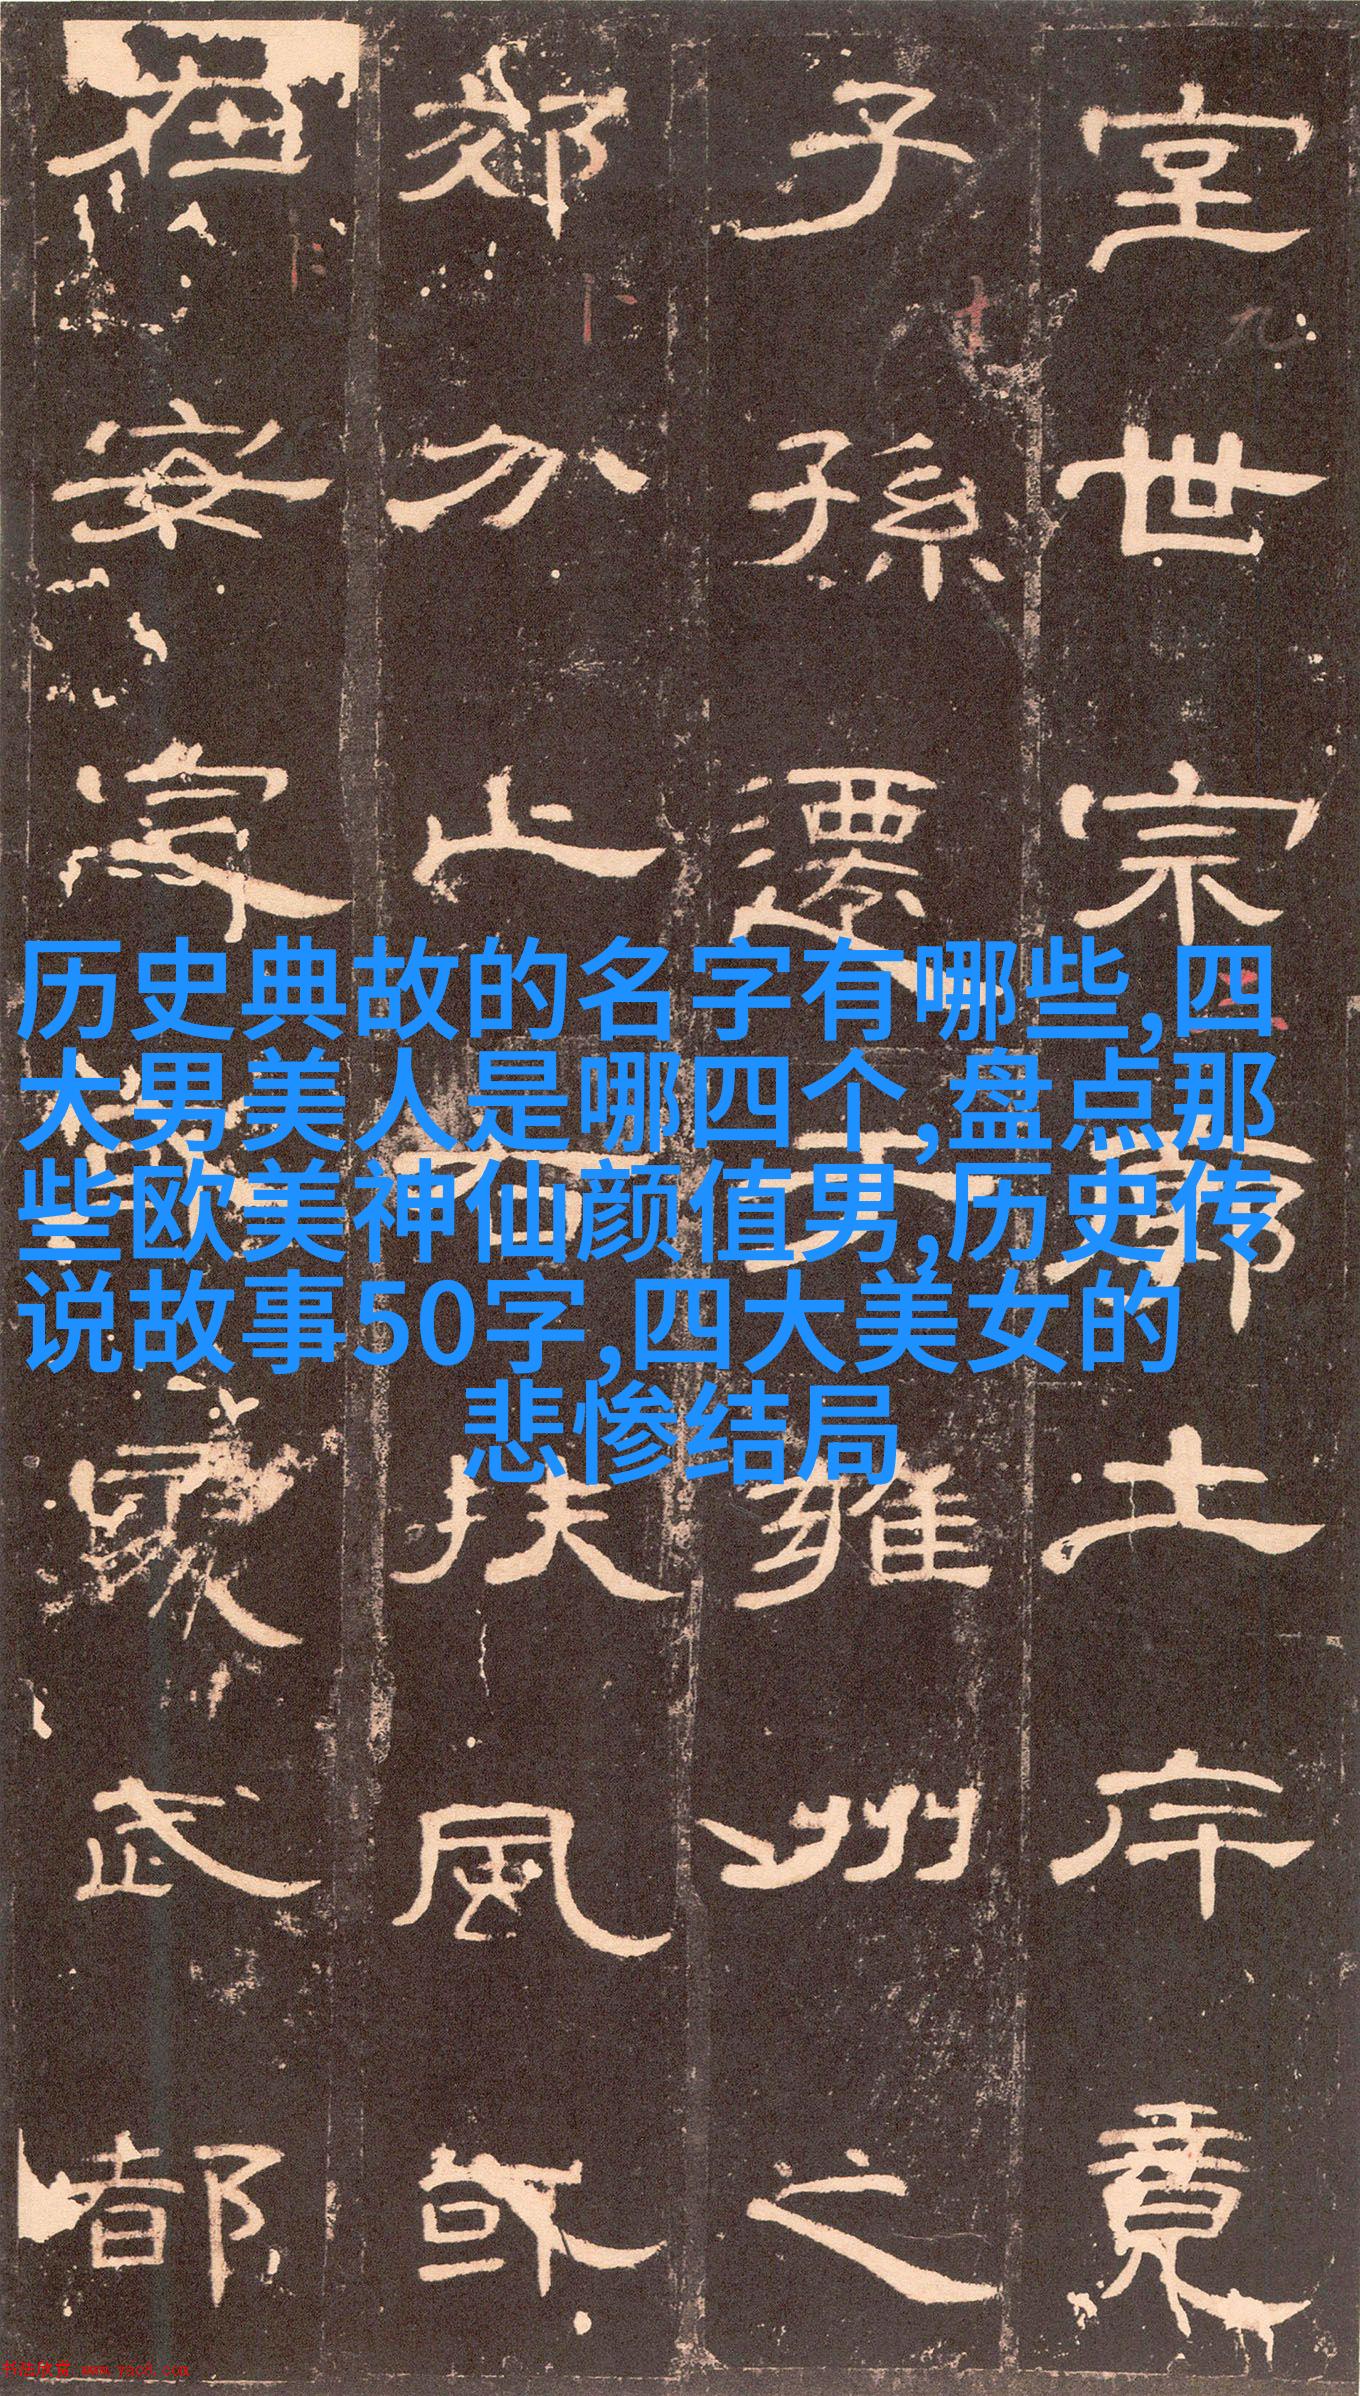 室世宗廓土斥竟
子孫遷于雍州之
郊分止右扶風或
在安定或處武都
历史典故的名字有哪些,四
大男美人是哪四个,盘点那
些欧美神仙颜值男,历史传
说故事50字,四大美女的
悲惨结局
书法欣赏 www.yac8.com